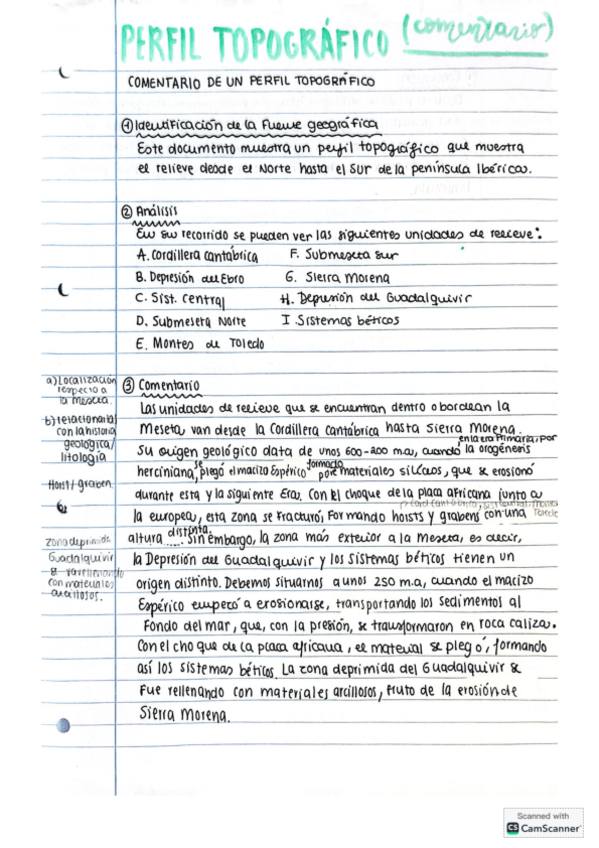 PERFIL TOPOGRÁFICO (comentario)
COMENTARIO DE UN PERFIL TOPOGRÁFICO
① Identificación de la Fuente geográfica
Este documento muestra un perfil topográfico que muestra
el relieve desde el Norte hasta el Sur de la península Ibérica.
② Análisis
En su recorrido se pueden ver las siguientes unidades de relieve:
A. Cordillera Cantábrica F. Submeseta sur
B. Depresión del Ebro G. Sierra Morena
C. Sist. Central H. Depresión del Guadalquivir
D. Submeseta Norte I Sistemas béticos
E. Montes de Toledo
a) Localización
respecto a
la meseta.
b) relacionarlas
con la historia
geológica/
litología
Horst/graben
zona deprimida
Guadalquivir
se va rellenando
con materiales
arcillosos.
③ Comentario
Las unidades de relieve que se encuentran dentro o bordean la
Meseta van desde la Cordillera cantábrica hasta Sierra Morena.
Su origen geológico data de unos 600-200 m.a, cuando en la era Primaria, por la orogénesis
herciniana, se plegó el macizo Espérico formado por materiales silíceos, que se erosionó
durante esta y la siguiente Era. Con el choque de la placa africana junto a
la europea, esta zona se fracturó, Formando hoists y grabens con una
altura distinta. Sin embargo, la zona más exterior a la Meseta, es decir,
la Depresión del Guadalquivir y los Sistemas béticos tienen un
origen distinto. Debemos situarnos a unos 250 m.a, cuando el macizo
Espérico empezó a erosionarse, transportando los sedimentos al
Fondo del mar, que, con la presión, se transformaron en roca caliza.
Con el choque de la placa africana, el material se plegó, formando
así los sistemas béticos. La zona deprimida del Guadalquivir se
Fue rellenando con materiales arcillosos, fruto de la erosión de
Sierra Morena.
Scanned with
CS CamScanner